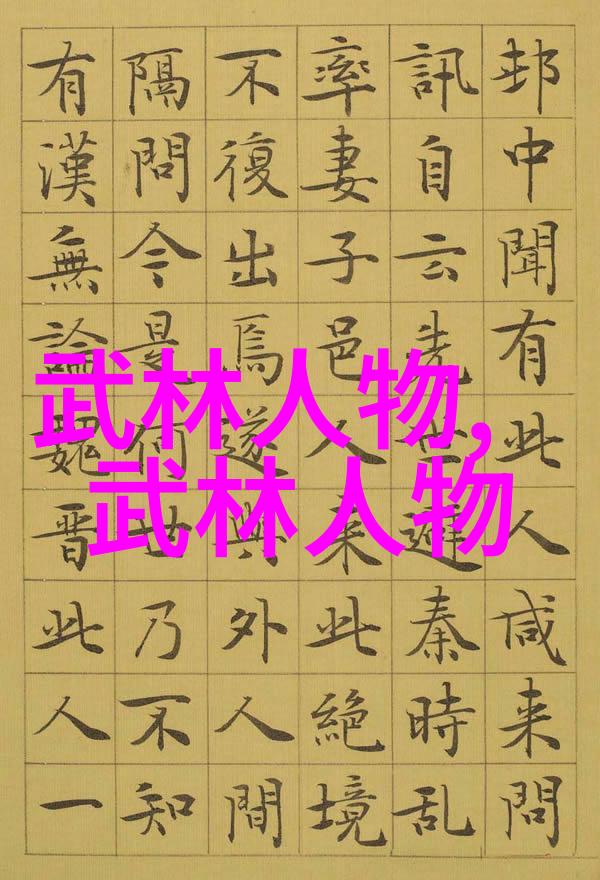 邨中聞有此人咸来問
訊自云先世避秦時乱
率妻子邑人来此絶境
不復出焉遂與外人間
隔問今是何世乃不知
有漢無論魏晋此人一
武林人物,
武林人物